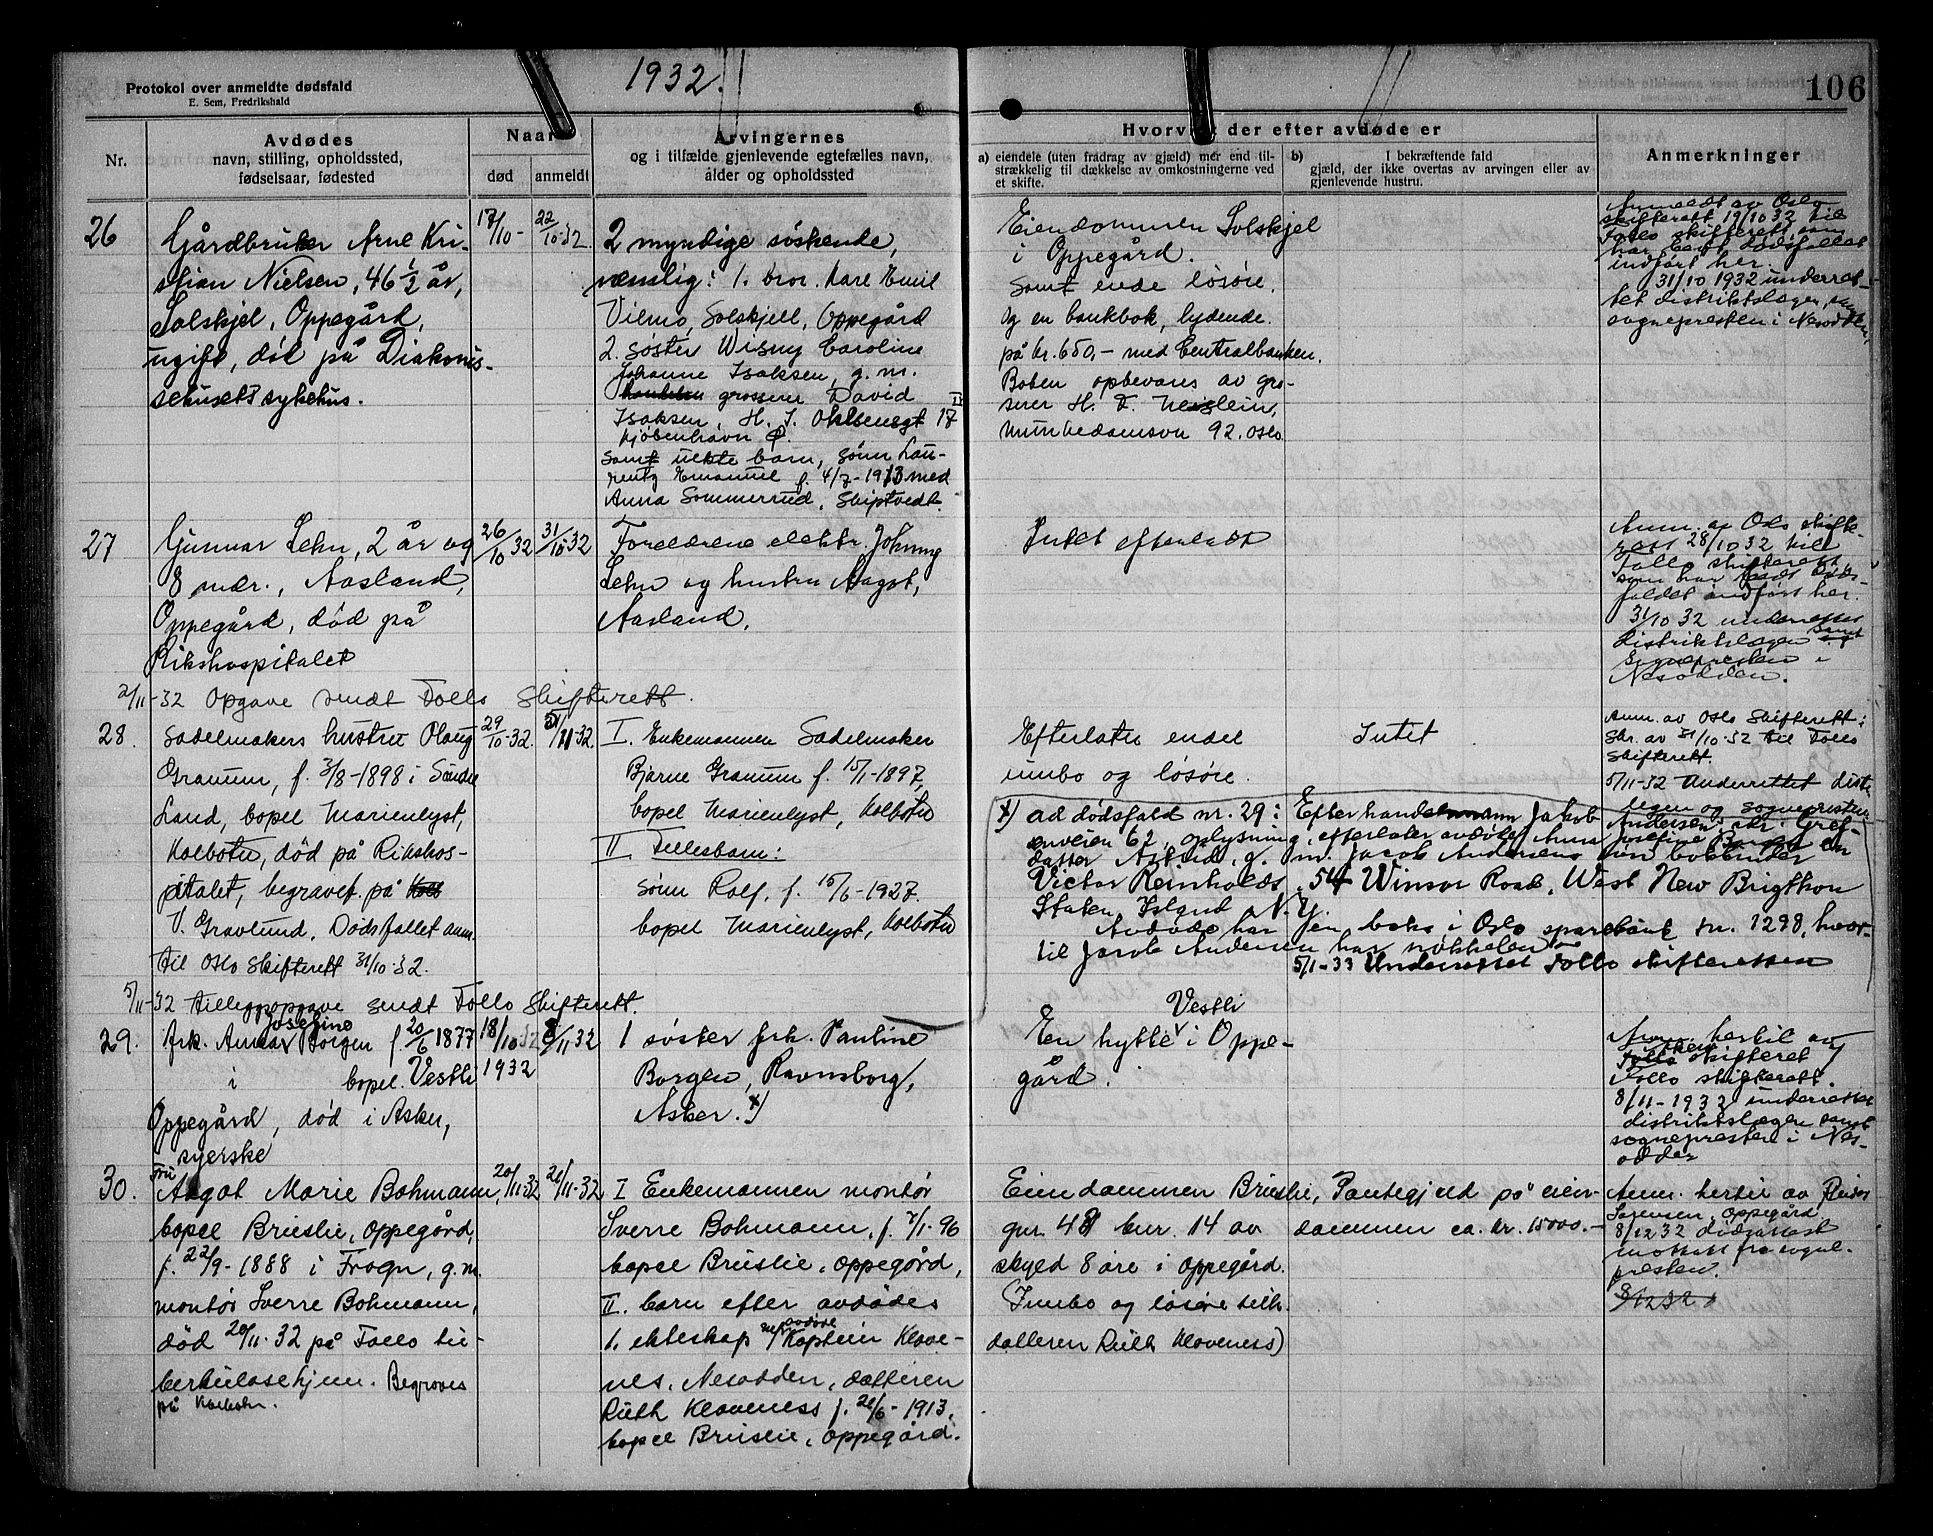 1932.
106
Protokol over anmeldte dødsfald
E. Sem, Fredrikshald
Nr.
Avdødes
navn, stilling, opholdssted,
fødselsaar, fødested
Naar
død
anmeldt
Arvingernes
og i tilfælde gjenlevende egtefælles navn,
alder og opholdssted
Hvorvidt der efter avdøde er
a) eiendele (uten fradrag av gjæld) mer end til-
strækkelig til dækkelse av omkostningerne ved
et skifte.
b) I bekræftende fald
gjæld, der ikke overtas av arvingen eller av
gjenlevende hustru.
Anmerkninger
26
Gårdbruker Arne Kri-
stian Nielsen, 46 1/2 år,
Solskjel, Oppegård,
ugift, død på Diakonis-
sehusets sykehus.
17/10-
22/10-32
2 myndige søskende,
nemlig: 1. bror Kare Emil
Vilmo, Solskjell, Oppegård
2. søster Wisny Caroline
Johanne Isaksen, g. m.
grosserer David
Isaksen, H. J. 17 II
Kjøbenhavn Ø.
samt uekte barn, sønn Lau-
rentz Emanuel f. 4/7-1913 med
Anna Sommerrud, Skiptvedt.
Eiendommen Solskjel
i Oppegård.
Samt ende løsøre.
Og en bankbok, lydende
på kr. 650,- med Centralbanken.
Boken opbevares av gros-
serer H. F.
Munkedamsvn 92. Oslo
Anmeldt av Oslo
skifterett 19/10 32 til
Follo skifterett, som
har bedt dødsfallet
indført her.
31/10 1932 underret-
tet distriktslægen, samt
sognepresten i Nesodden.
27
Gunnar Lehn, 2 år og
8 mdr., Aasland,
Oppegård, død på
Rikshospitalet
26/10 32
31/10 32
Foreldrene elektr. Johnny
Lehn og hustru Aagot,
Aasland.
Intet efterladt
Anm. av Oslo skifte-
rett 28/10 32 til
Follo skifterett
som har bedt døds-
faldet indført her.
31/10 32 underrettet
distriktslægen samt
sognepresten i
Nesodden.
2/11-32 Opgave sendt Follo Skifterett.
28.
Sadelmakers hustru Olaug
Granum, f. 3/8-1898 i Søndre
Land, bopel Marienlyst,
Kolbotn, død på Rikshos-
pitalet, begravet på Kolb
V. Gravlund. Dødsfallet anm.
til Oslo Skifterett 31/10-32.
29/10-32.
5/11-32.
I. Enkemannen Sadelmaker
Bjarne Granum f. 15/1-1897,
bopel Marienlyst, Kolbotn
II Fellesbarn:
sønn Rolf, f. 15/6-1927.
bopel Marienlyst, Kolbotn
Efterlater endel
innbo og løsøre.
Intet
Anm. av Oslo Skifterett i
skr. av 31/10-32 til Follo
Skifterett.
5/11-32 Underrettet distr.
legen og sognepresten
x) ad dødsfald nr. 29: Efter handelsmann Jakob Andersen, adr. Gref-
senveien 62, oplysning, efterlater avdøde Anna Josefine Borgen en
datter Astrid, g. m. Jacob Andersens sønn bokbinder
Victor Reinholdt, 54 Winsor Road, West New Brigthon
Staten Island N.Y.
Avdøde har en boks i Oslo sparebank nr. 1298, hvor-
til Jacob Andersen har nøkkelen
5/1-33 Underrettet Follo skifteretten
5/11-32 tilleggsopgave sendt Follo Skifterett.
29.
frk. Anna Josefine Borgen f. 20/6 1877
i bopel. Vestli
Oppegård, død i Asker,
syerske
18/10 32
1932
8/11 32
1 søster frk. Pauline
Borgen, Ravnsborg,
Asker. x)
En hytte Vestli i Oppe-
gård.
Anm. hertil av
Follo skifteret
Follo skifterett.
8/11-1932 underrettet
distriktslægen samt
sognepresten i Nes-
odden
30.
Fru Aagot Marie Bohmann,
bopel Brueslie, Oppegård,
f. 22/9-1888 i Frogn, g.m.
montør Sverre Bohmann,
død 20/11-32 på Follo tu-
berkulosehjem. Begraves
på Kolbotn.
20/11-32
20/11-32
I Enkemannen montør
Sverre Bohmann, f. 7/1-96
bopel Brueslie, Oppegård,
II. barn efter avdødes
1. ekteskap m/ avdøde Kaptein Klove-
nes, Nesodden, datteren
Ruth Kloveness f. 20/6-1913,
bopel Brueslie, Oppegård.
Eiendommen Brueslie,
gnr. 48 bnr. 14 av
skyld 8 øre i Oppegård.
Innbo og løsøre tilh.
datteren Ruth Kloveness)
Pantegjeld på eien-
dommen ca. kr. 15000.-
Anm. hertil av
Sørensen, Oppegård
8/12 32 dødsattest
mottatt fra sogne-
presten.
8/12 32